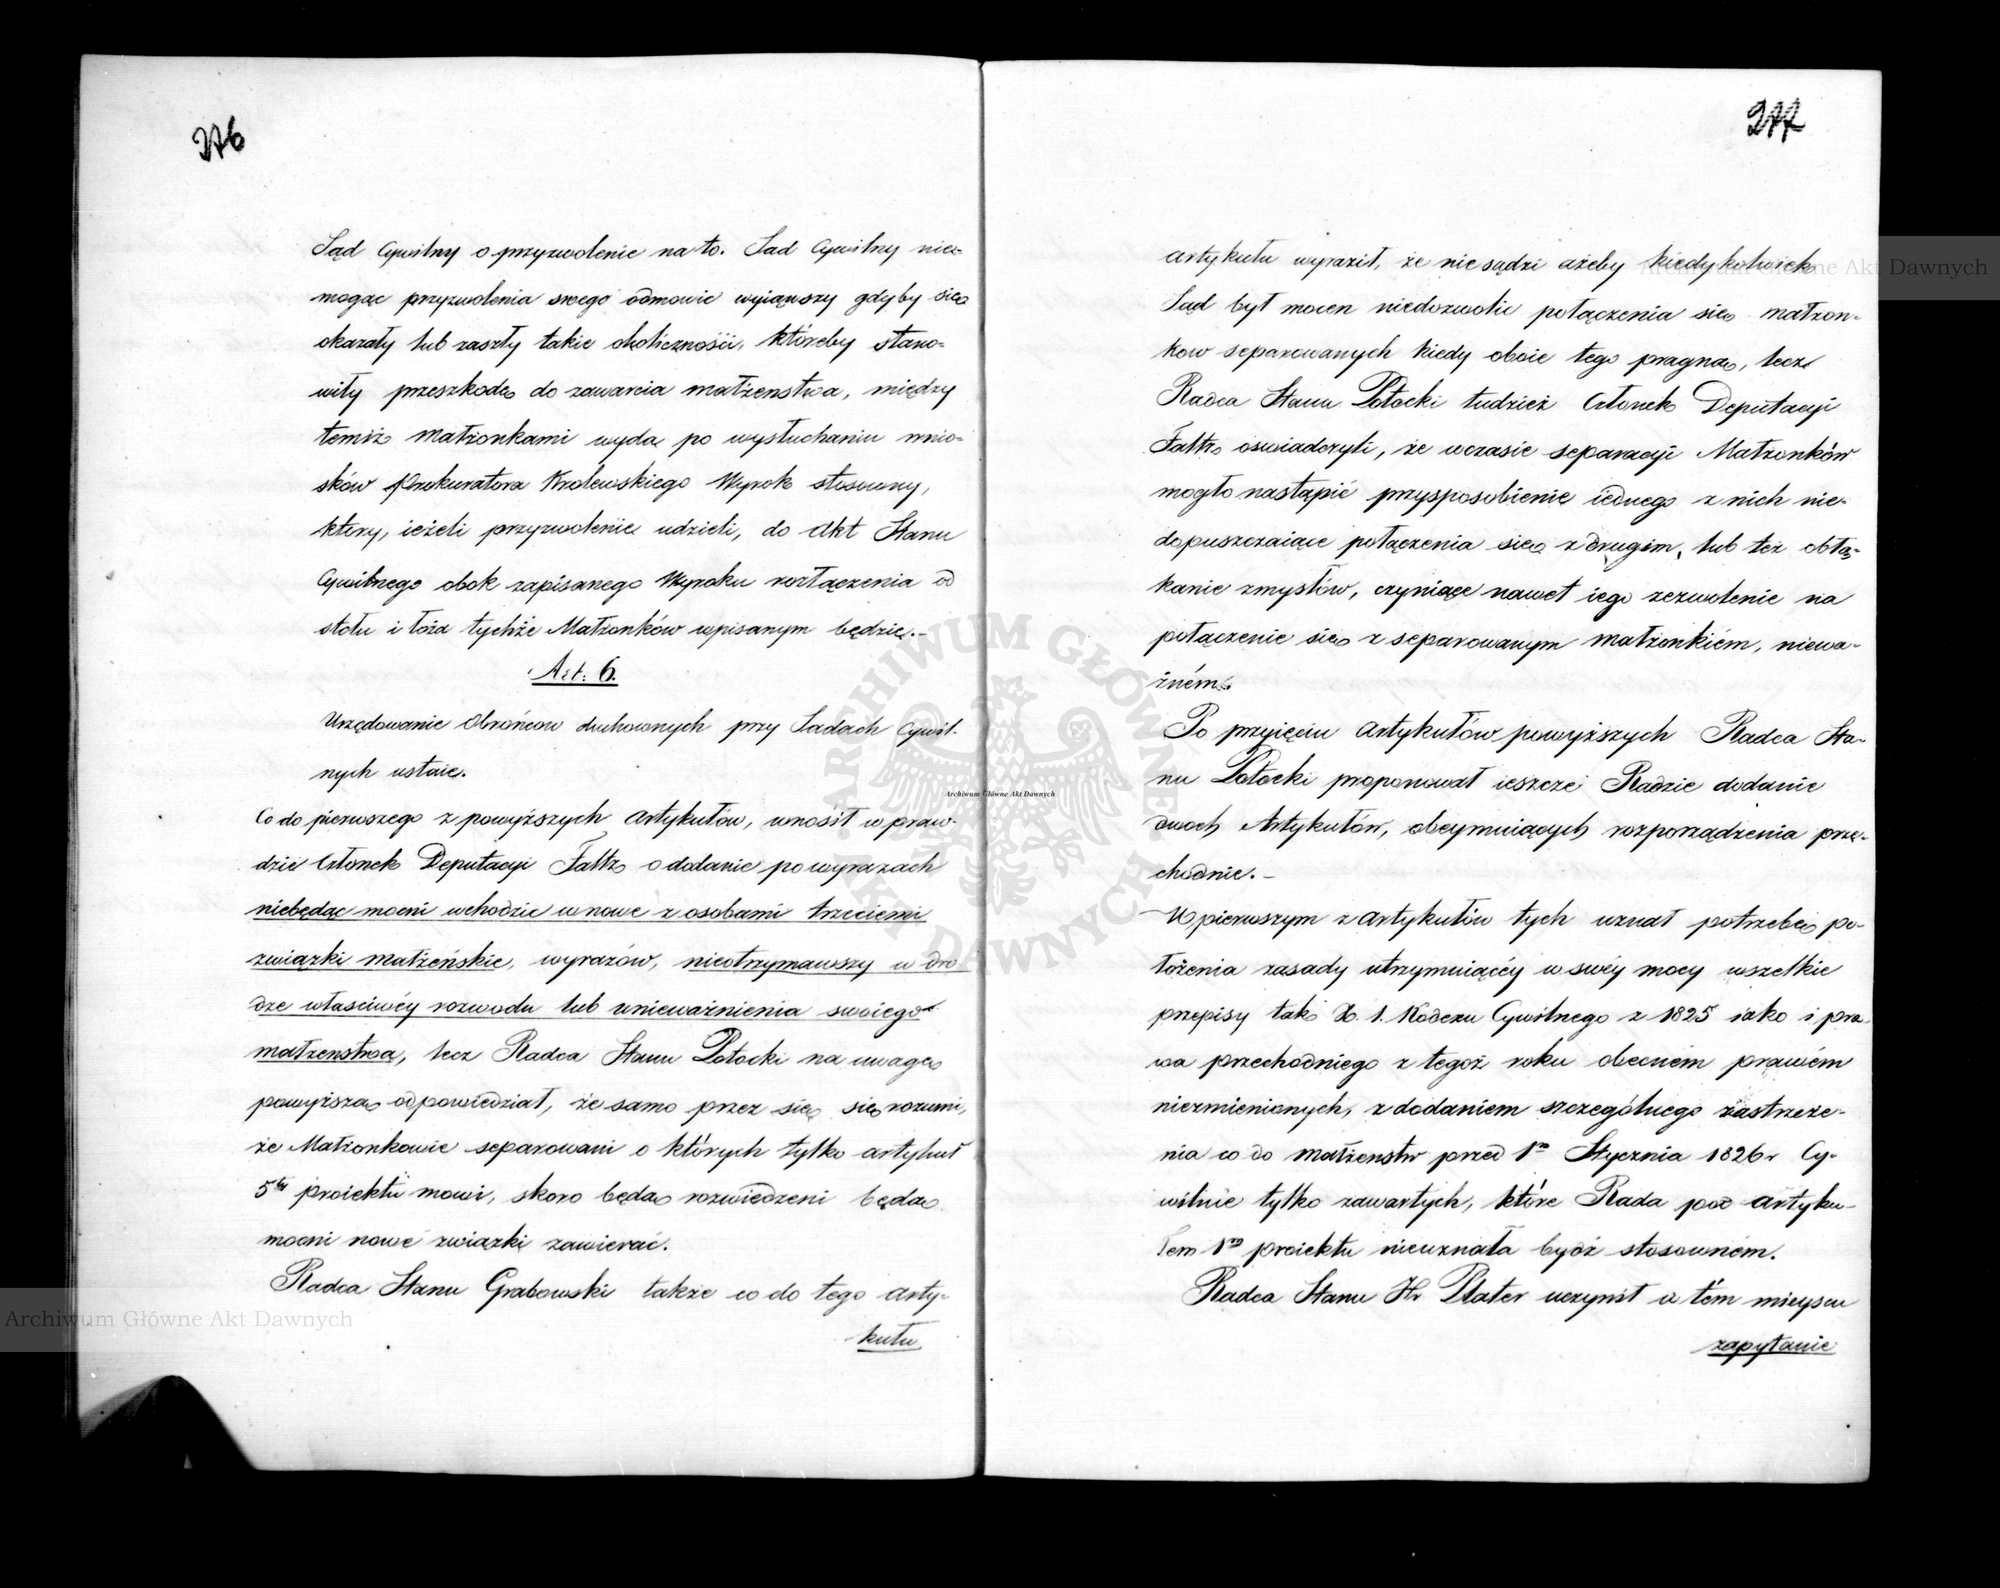 276
Sąd Cywilny o przyzwolenie na to. Sad Cywilny nie-
mogąc przyzwolenia swego odmowić wyiąwszy gdyby się
okazały lub zaszły takie okoliczności, któreby stano-
wiły przeszkodę do zawarcia małżenstwa, między
temiż Małżonkami wyda po wysłuchaniu wnio-
sków Prokuratora Krolewskiego Wyrok stosowny,
ktory, ieżeli przyzwolenie udzieli, do Akt Stanu
Cywilnego obok zapisanego Wyroku rozłączenia od
stołu i łoża tychże Małżonków wpisanym będzie.-
Art: 6.
Urzędowanie Obrońcow duchownych przy Sadach Cywil-
nych ustaie.
Co do pierwszego z powyższych Artykułów, wnosił w praw-
dzie Członek Deputacyi Faltz o dodanie po wyrazach
niebędąc mocni wchodzić w nowe z osobami trzeciemi
związki małżeńskie, wyrazów, nieotrzymawszy w dro
dze właściwéy rozwodu lub unieważnienia swoiego
małżenstwa, lecz Radca Stanu Potocki na uwagę
powyższą odpowiedział, że samo przez się się rozumi,
że Małżonkowie separowani o których tylko artykuł
5ty proiektu mowi, skoro będą rozwiedzeni będą
mocni nowe związki zawierać.
Radca Stanu Grabowski także co do tego arty-
kułu
277
artykułu wyraził, że nie sądzi ażeby kiedykolwiek
Sąd był mocen niedozwolić połączenia się małżon-
kow separowanych kiedy oboie tego pragną, lecz
Radca Stanu Potocki tudzież Członek Deputacyi
Faltz oswiadczyli, że wczasie separacyi Małżonków
mogło nastąpić przysposobienie iednego z nich nie-
dopuszczaiące połączenia się z drugim, lub też obłą-
kanie zmysłów, czyniące nawet iego zezwolenie na
połączenie się z separowanym małżonkiém, niewa-
żném.
Po przyięciu Artykułów powyższych Radca Sta-
nu Potocki proponował ieszcze Radzie dodanie
dwoch Artykułów, obeymuiących rozporządzenia prze-
chodnie.-
W pierwszym z Artykułów tych uznał potrzebę po-
łożenia zasady utrzymuiącéy w swéy mocy wszelkie
przepisy tak X. 1. Kodexu Cywilnego z 1825 iako i pra
wa przechodniego z tegoż roku obecném prawém
niezmienionych, z dodaniem szczególnego zastrzeże-
nia co do małżenstw przed 1m Stycznia 1826 r Cy-
wilnie tylko zawartych, które Rada pod artyku-
łem 1m proiektu nieuznała bydź stosowném.
Radca Stanu Hr Plater uczynił w tém mieyscu
zapytanie
Archiwum Główne Akt Dawnych
Archiwum Główne Akt Dawnych
ARCHIWUM GŁÓWNE AKT DAWNYCH
Archiwum Główne Akt Dawnych